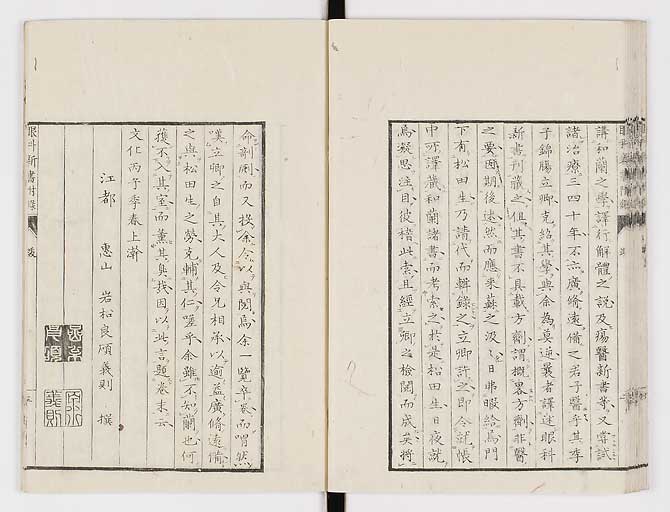 講和蘭之學譯行解體之說及瘍醫新書等又嘗試
諸治療三四十年不亦廣脩遠備之君子醫乎其季
子錦腸立卿克紹其學與余為莫逆曩者譯述眼科
新書刊藏之但其書不具載方劑謂撰畧方劑非醫
之要因期後述然而應來蘇之汲〻日弗暇給焉門
下有松田生乃請代而輯錄之立卿許之即令就帳
中所譯藏和蘭諸書而考索之於是松田生日夜就
為凝思注目彼稽此索且經立卿之檢閱而成矣將
命剞劂而又授余令以與閱焉余一覽卒卷而喟然
嘆立卿之自其大人及令兄相承以逾益廣脩遠備
之與松田生之勞克輔其仁嗟乎余雖不知蘭也何
獲不入其室而薰其臭哉因以此言題卷末云
文化丙子季春上澣
江都 惠山 岩松良碩義則 撰
義則
眼科新書付錄
跋